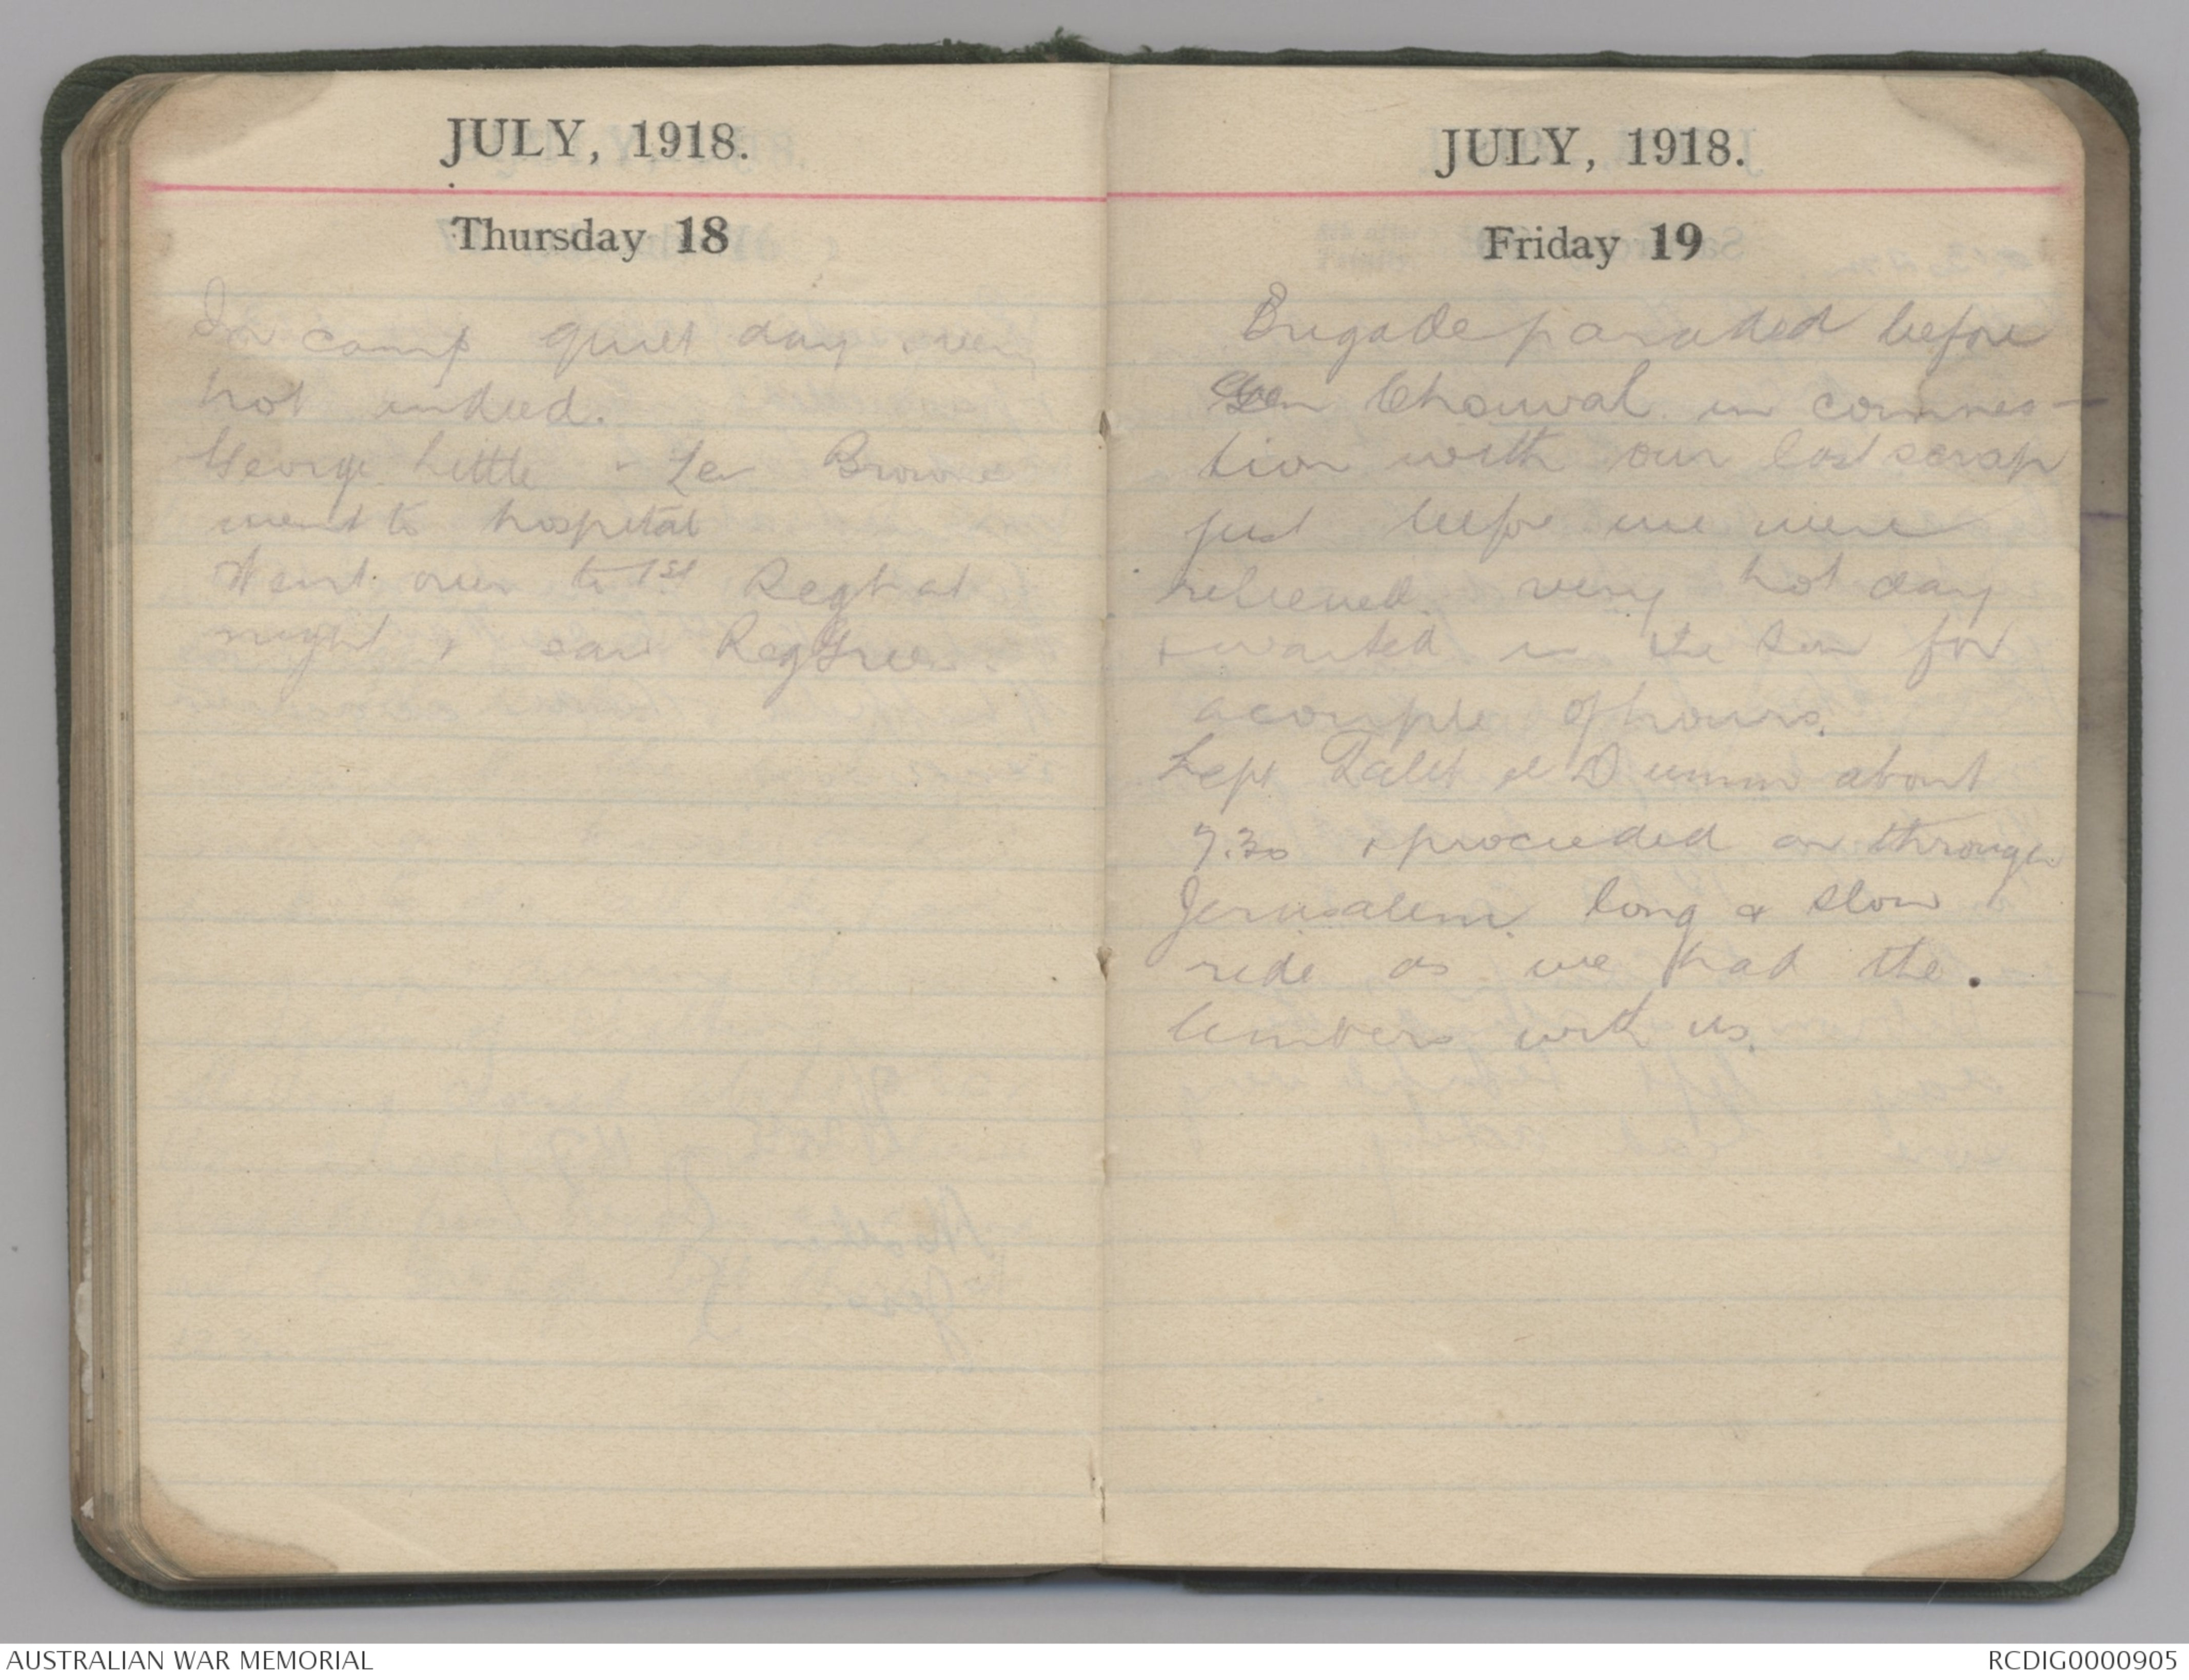 JULY, 1918.
Thursday 18
In camp quiet day very
hot indeed.
George Little & Les Browne
went to hospital
Went over to 1st Regt at
night & saw Reg Green.
JULY, 1918.
Friday 19
Brigade paraded before
Gen Chauval in connec-
tion with our last scrap
just before we were
relieved. very hot day
& waited in the sun for
a couple of hours.
Left Talet el Dumm about
7.30 & proceeded on through
Jerusalem. long & slow
ride as we had the.
limbers with us.
AUSTRALIAN WAR MEMORIAL
RCDIG0000905